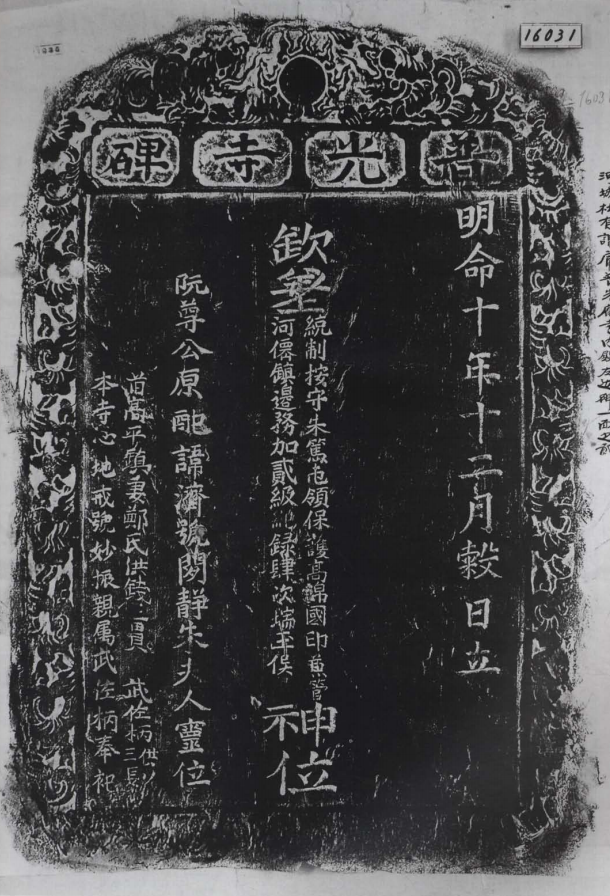 16031
普光寺碑
明命十年十二月穀日立
欽差
統制按守朱篤屯領保護高綿國印兼管
河僊鎮邊務加貳級紀錄肆次瑞玉侯
神位
阮尊公原配諱濟號閑靜朱夫人靈位
高平鎮妻鄭氏洪錢二貫
武佐柄供三
本寺心地戒號妙振親属武佐柄奉祀